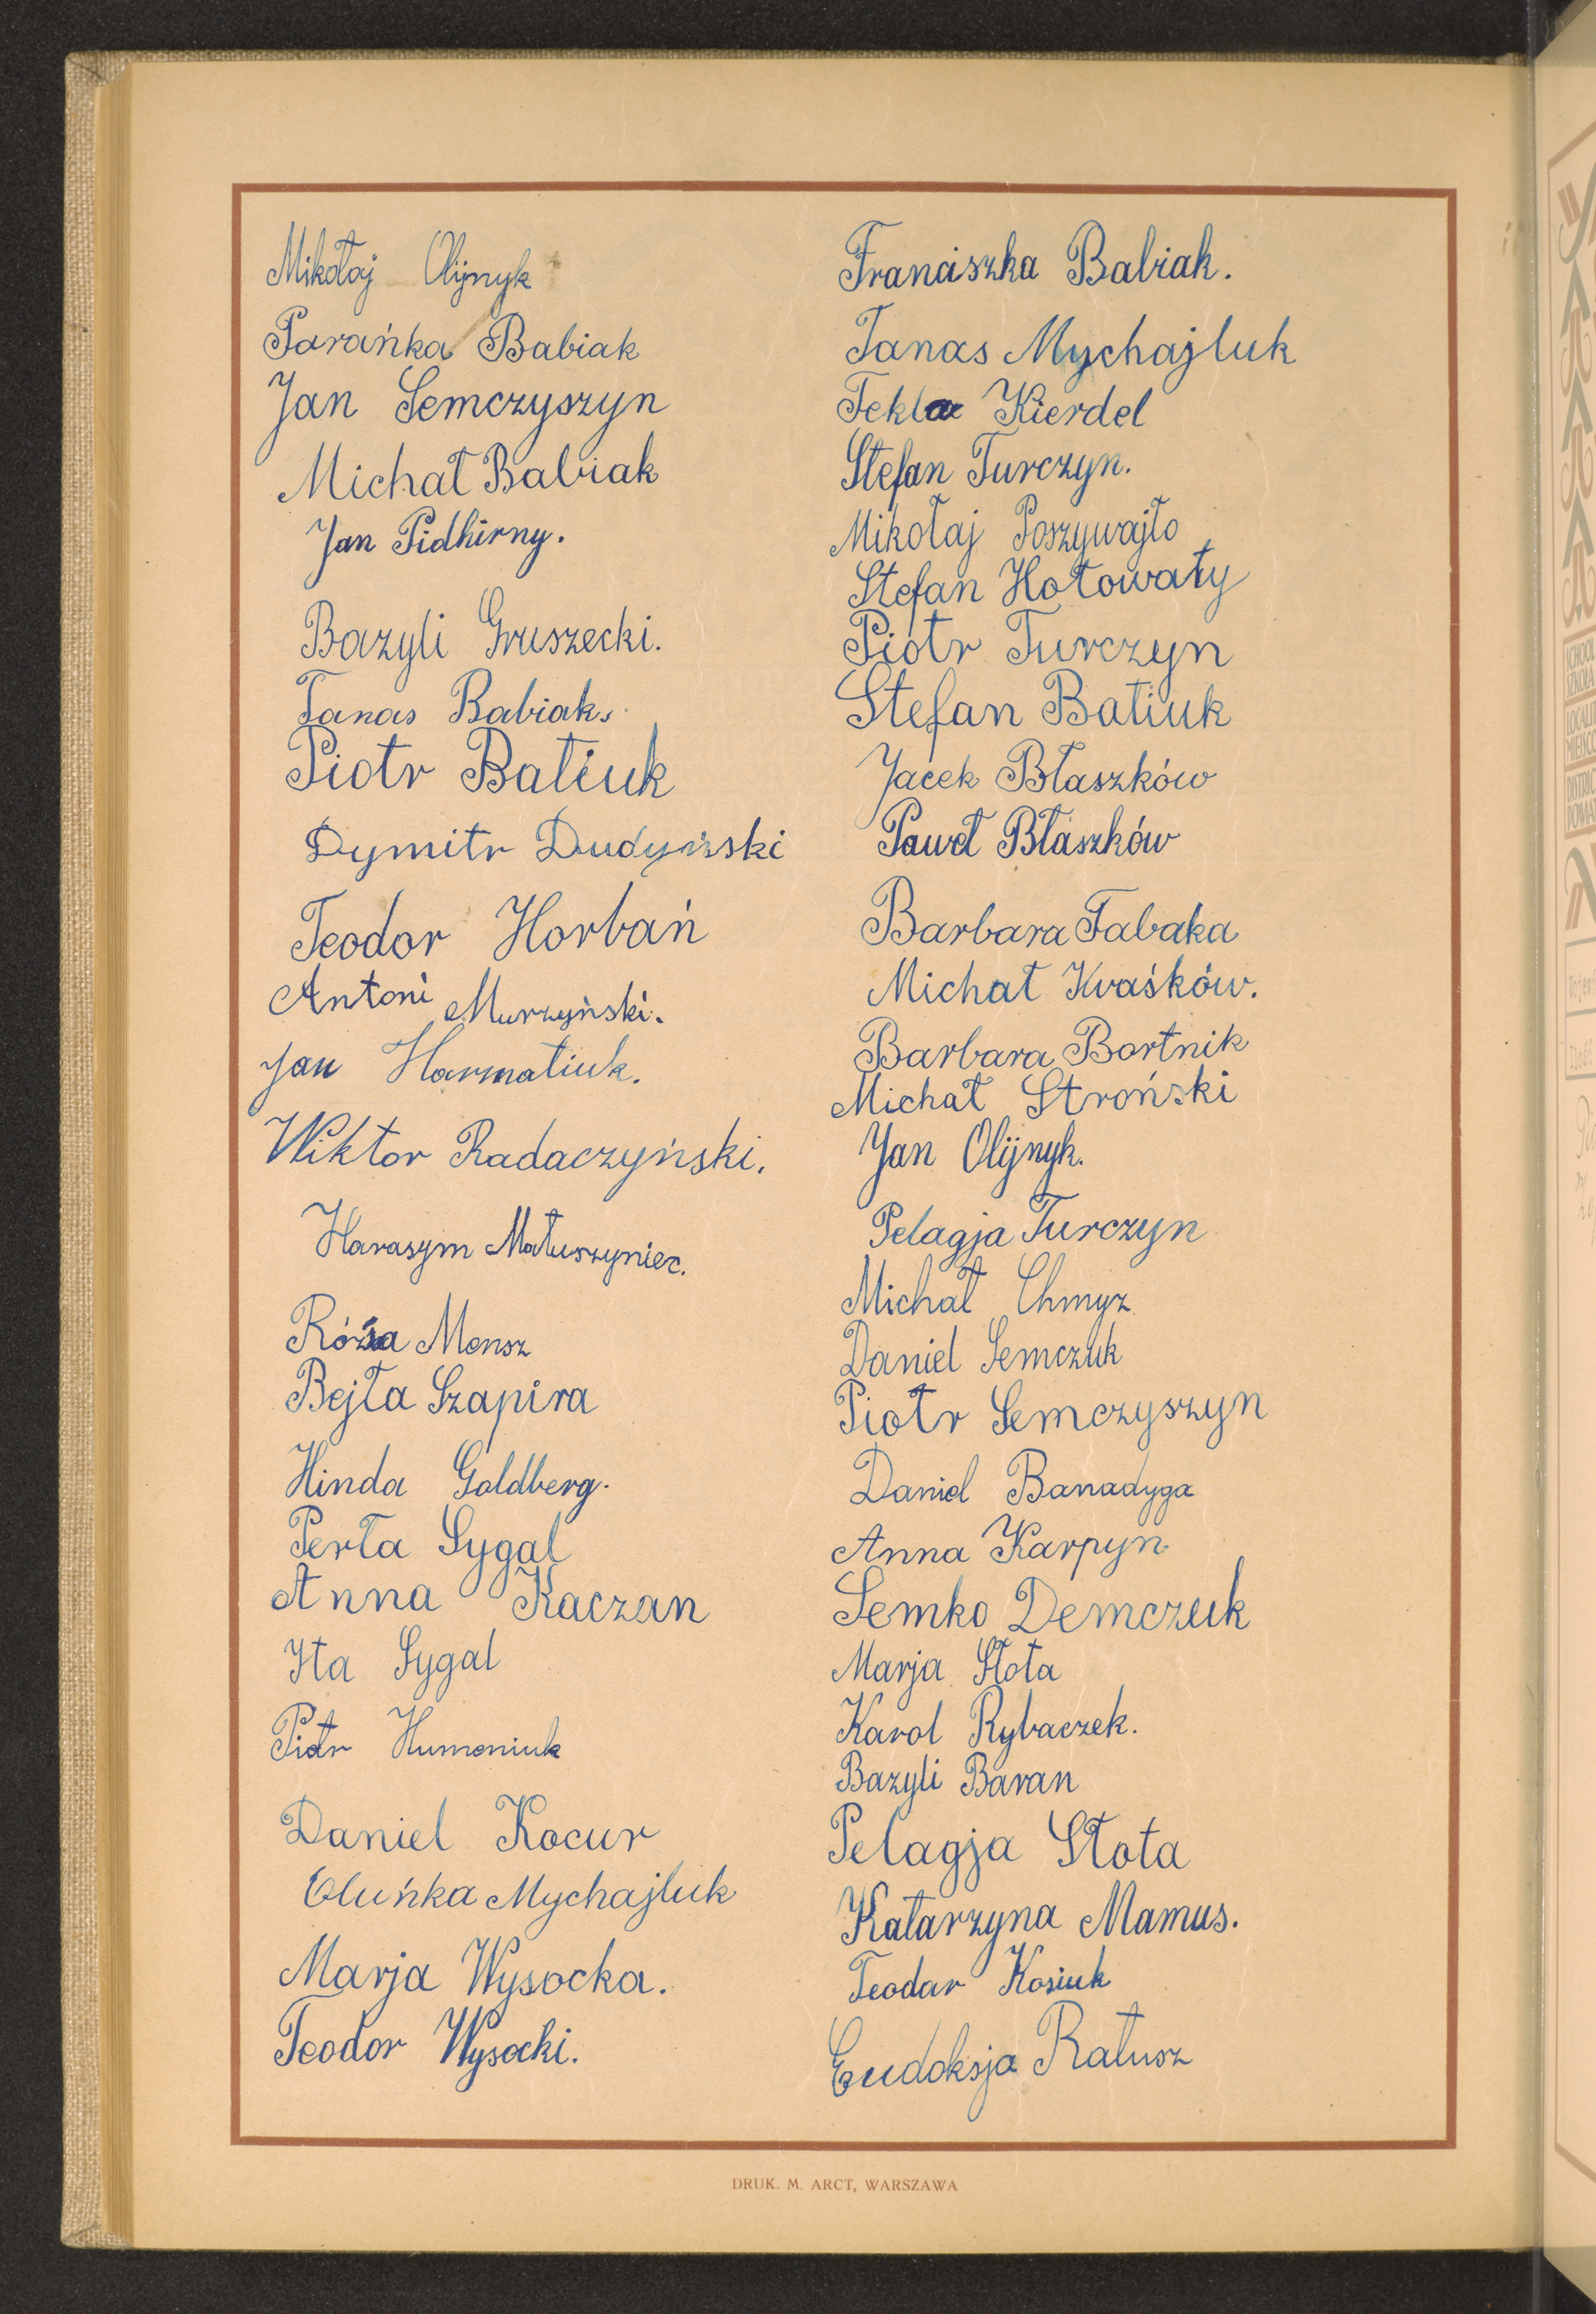 Mikołaj Olijnyk
Parańka Babiak
Jan Semczyszyn
Michał Babiak
Jan Pidhirny.
Bazyli Gruszecki.
Tanas Babiak.
Piotr Batiuk
Dymitr Dudyński
Teodor Horbań
Antoni Murzyński.
Jan Harmatiuk.
Wiktor Radaczyński.
Harasym Matuszyniec.
Róża Mensz
Bejła Szapira
Hinda Goldberg.
Perła Sygal
Anna Kaczan
Ita Sygal
Piotr Humeniuk
Daniel Kocur
Oluńka Mychajluk
Marja Wysocka.
Teodor Wysocki.
Franciszka Babiak.
Tanas Mychajluk
Tekla Kierdel
Stefan Turczyn.
Mikołaj Poszywajło
Stefan Hołowaty
Piotr Turczyn
Stefan Batiuk
Jacek Błaszków
Paweł Błaszków
Barbara Tabaka
Michał Kvaśków.
Barbara Bortnik
Michał Stroński
Jan Olijnyk.
Pelagja Turczyn
Michał Chmyz
Daniel Semczuk
Piotr Semczyszyn
Daniel Banadyga
Anna Karpyn
Semko Demczuk
Marja Słota
Karol Rybaczek.
Bazyli Baran
Pelagja Słota
Katarzyna Mamus.
Teodar Kosiuk
Eudoksja Ratusz
DRUK. M. ARCT, WARSZAWA